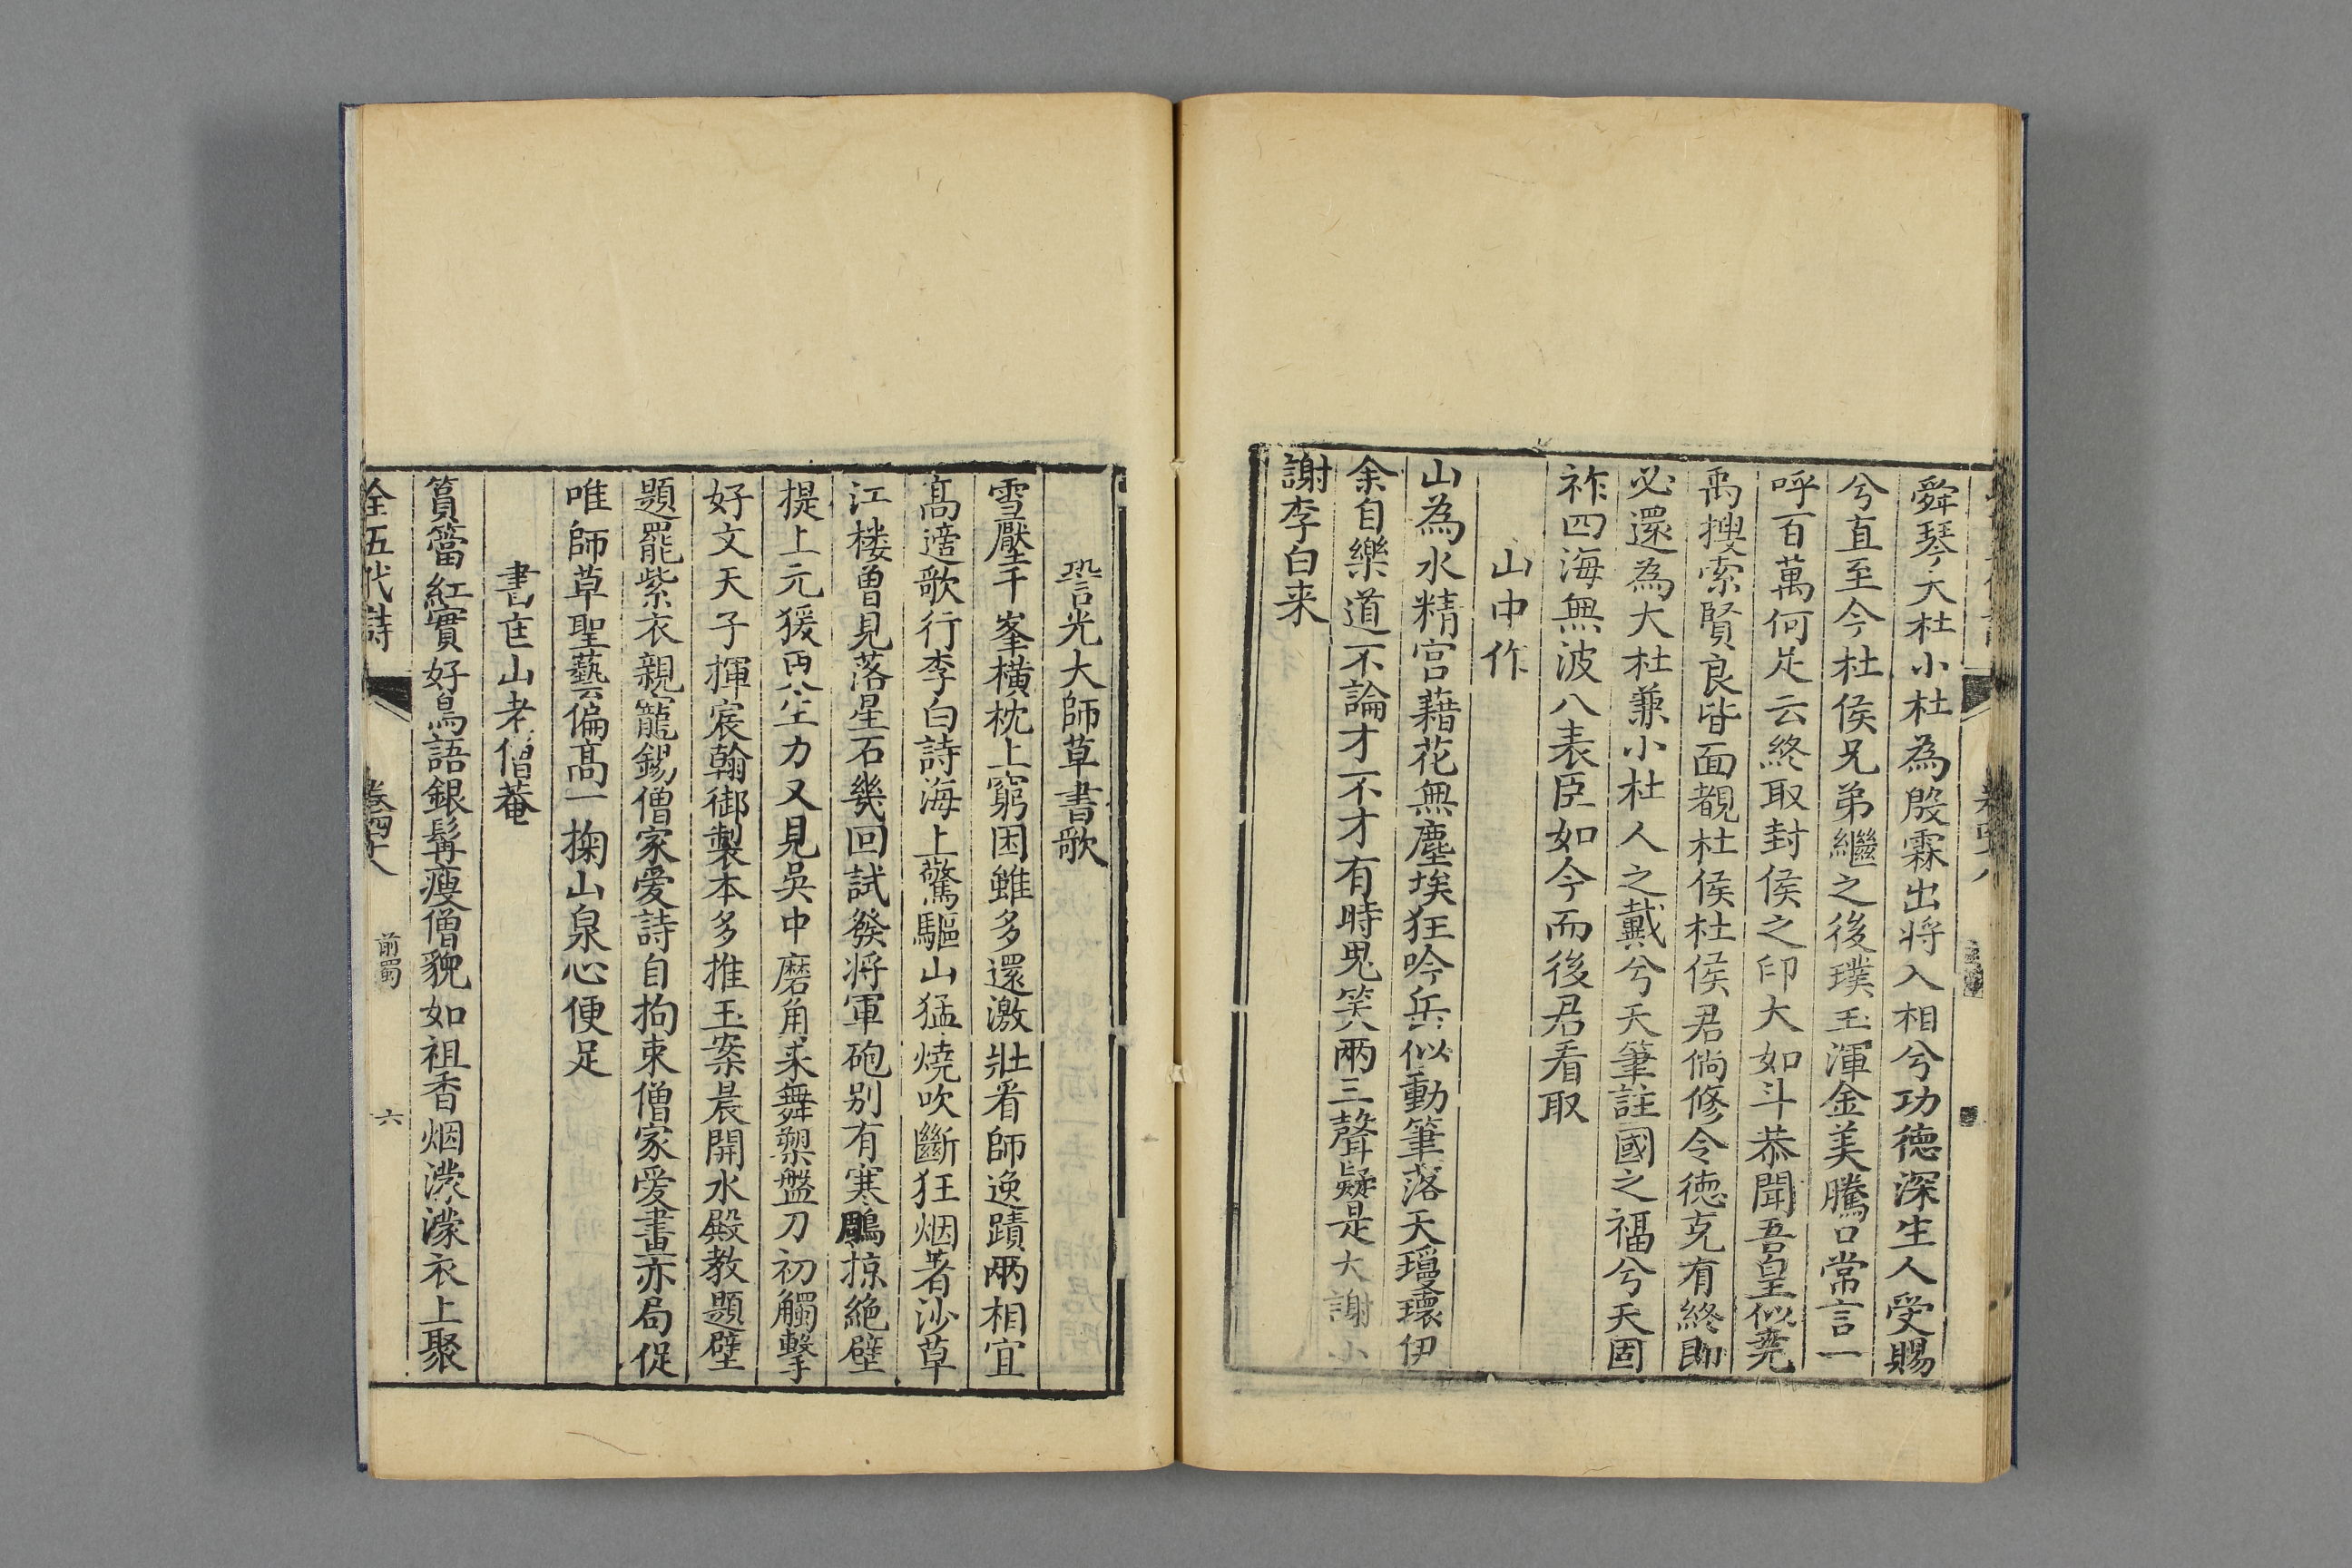 舜琴大杜小杜為殷霖出將入相兮功德深生人受賜
兮直至今杜侯兄弟繼之後璞玉渾金美騰口常言一
呼百萬何足云終取封侯之印大如斗恭聞吾皇似堯
禹搜索賢良皆面覩杜侯杜侯君倘修令德克有終即
必還為大杜兼小杜人之戴兮天筆註國之福兮天固
祚四海無波八表臣如今而後君看取
山中作
山為水精宮藉花無塵埃狂吟兵似動筆落天瓊瓌伊
余自樂道不論才不才有時鬼笑兩三聲疑是大謝小
謝李白来
䛒光大師草書歌
雪壓千峯橫枕上窮困雖多還激壯看師逸蹟兩相宜
高適歌行李白詩海上驚驅山猛燒吹斷狂烟著沙草
江樓曾見落星石幾回試發將軍砲别有寒鵰掠絶壁
提上元猨更生力又見吳中磨角来舞槊盤刀初觸擊
好文天子揮宸翰御製本多推玉案晨開水殿教題壁
題罷紫衣親寵錫僧家愛詩自拘束僧家愛畫亦局促
唯師草聖藝偏高一掬山泉心便足
書匡山老僧菴
篔簹紅實好鳥語銀髯瘦僧貌如祖香烟濛濛衣上聚
全五代詩
卷四十八
前蜀
六